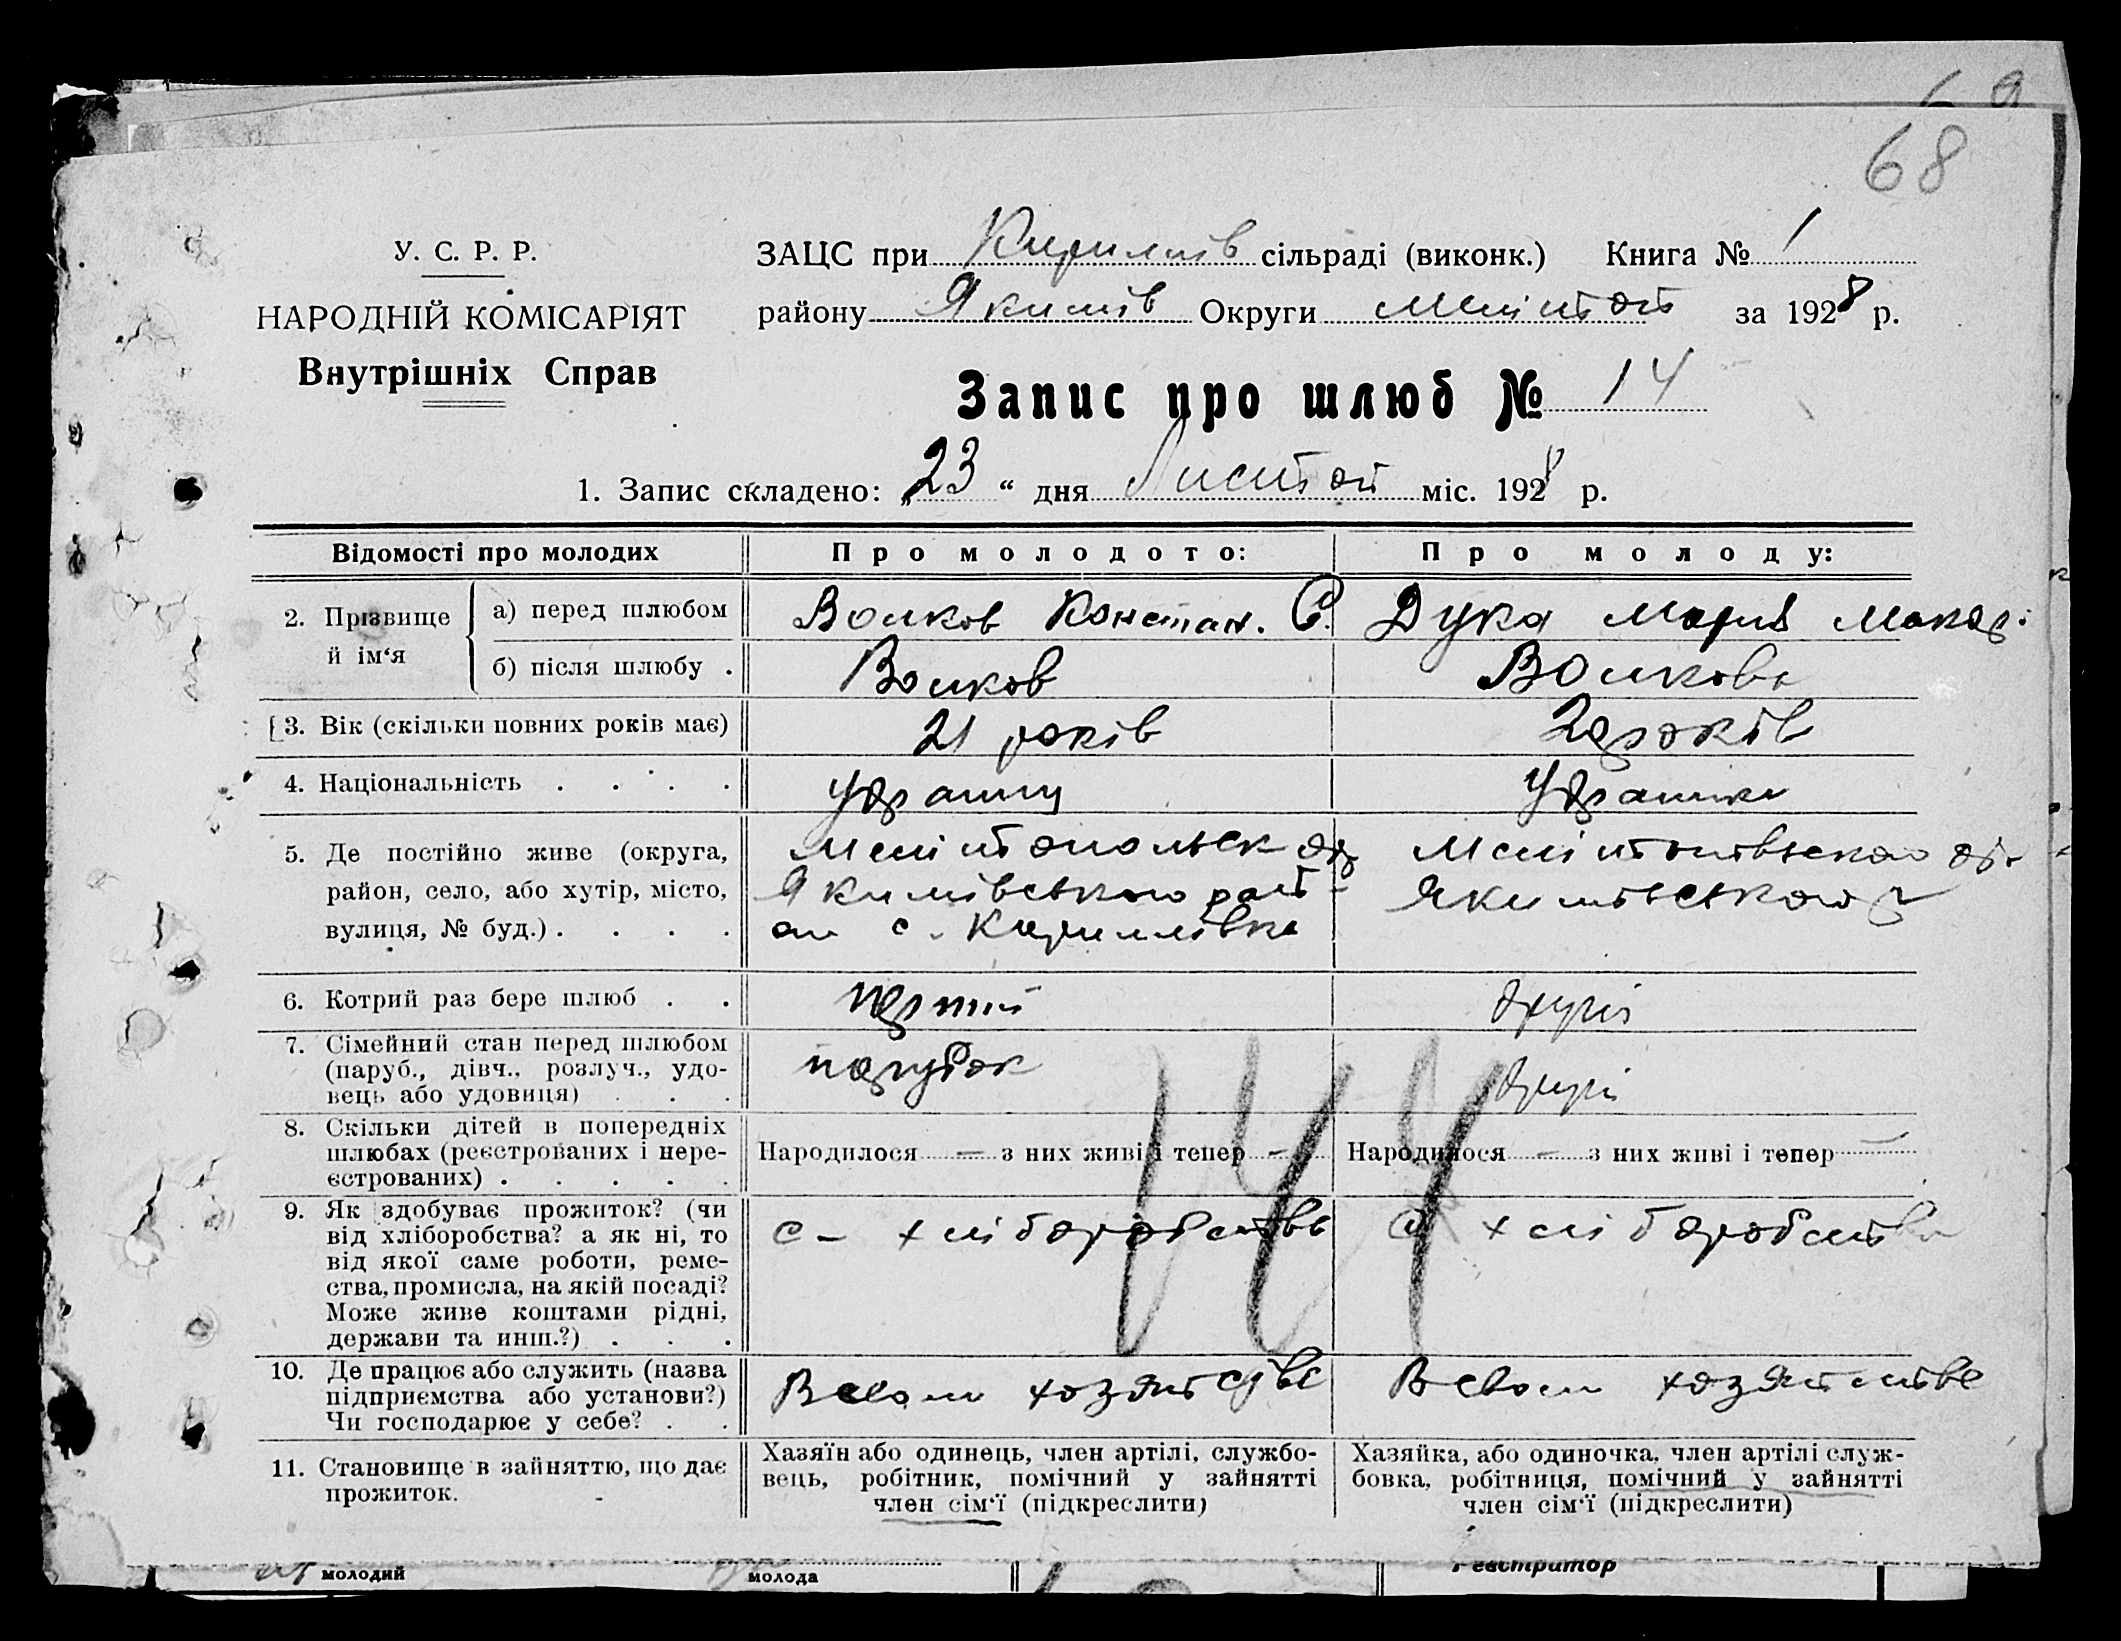 68
У. С. Р. Р.
НАРОДНІЙ КОМІСАРІЯТ
Внутрішніх Справ
ЗАЦС при Кирилів сільраді (виконк.) Книга № 1
району Якимів Округи Меліттоп за 1928 р.
Запис про шлюб № 14
1. Запис складено: „23“ дня Листоп міс. 1928 р.
Відомості про молодих
Про молодого:
Про молоду:
2. Прізвище й ім‘я
а) перед шлюбом
Волков Констан. С.
Дука Мария Макар.
б) після шлюбу .
Волков
Волкова
3. Вік (скільки повних років має)
21 років
років
4. Національність . . . .
Украинц
Украинка
5. Де постійно живе (округа,
район, село, або хутір, місто,
вулиця, № буд.) . . . .
Мелітопольск окр
Якимівського рай-
он с. Кириллівка
Мелітопівського окр
Якимівського р
6. Котрий раз бере шлюб . .
перший
другій
7. Сімейний стан перед шлюбом
(паруб., дівч., розлуч., удо-
вець або удовиця) . . .
парубок
другі
8. Скільки дітей в попередніх
шлюбах (реєстрованих і нере-
єстрованих) . . . . .
Народилося — з них живі і тепер —
Народилося — з них живі і тепер —
144
9. Як здобуває прожиток? (чи
від хліборобства? а як ні, то
від якої саме роботи, реме-
ства, промисла, на якій посаді?
Може живе коштами рідні,
держави та инш.?) . . .
с - хліборобства
с хліборобства
10. Де працює або служить (назва
підприємства або установи?)
Чи господарює у себе? . .
В свом хозяйстве
В свом хозяйстве
11. Становище в зайняттю, що дає
прожиток.
Хазяїн або одинець, член артілі, службо-
вець, робітник, помічний у зайнятті
член сім‘ї (підкреслити)
Хазяйка, або одиночка, член артілі служ-
бовка, робітниця, помічний у зайнятті
член сім‘ї (підкреслити)
молодий
молода
Реєстратор